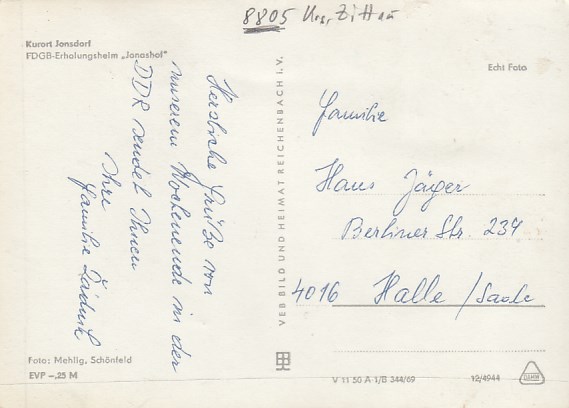 8805 Krs. Zittau
Kurort Jonsdorf
FDGB-Erholungsheim „Jonashof"
Echt Foto
Herzliche Grüße von
unserem Wochenende in der
DDR sendet Ihnen
Ihre
Familie
VEB BILD UND HEIMAT REICHENBACH I. V.
Familie
Hans Jäger
Berliner Str. 234
4016 Halle / Saale
Foto: Mehlig, Schönfeld
EVP -,25 M
V 11 50 A 1/B 344/69
12/4944